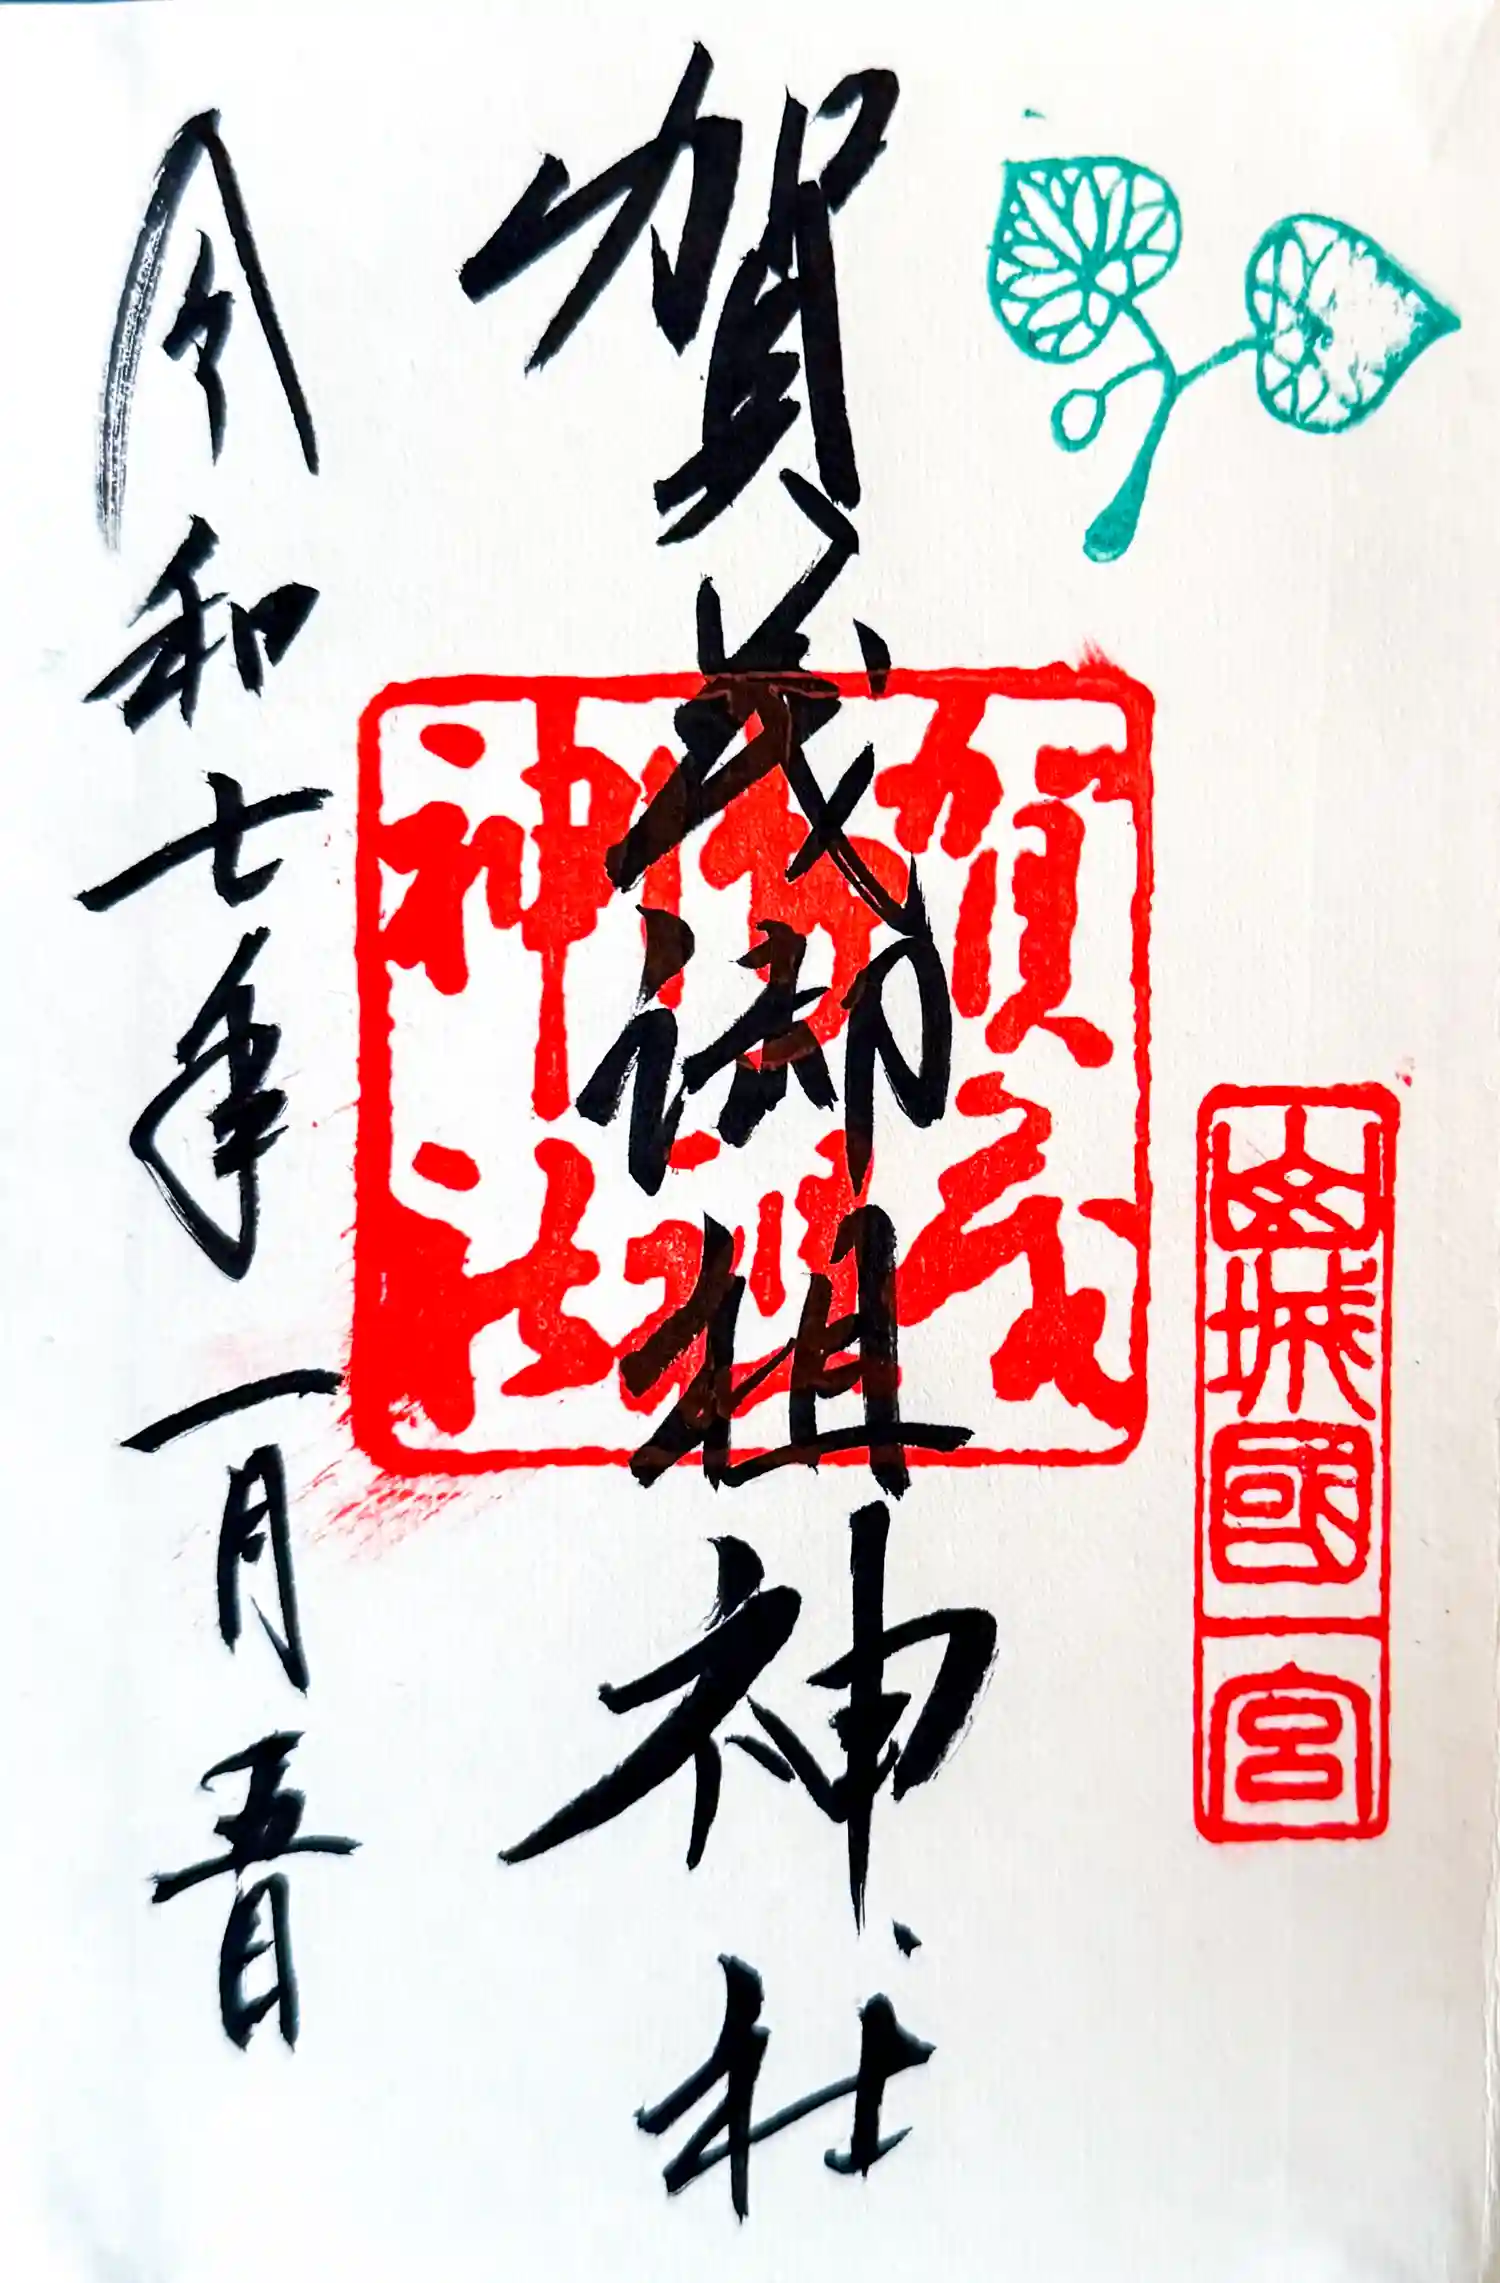 山城國一宮
賀茂御祖神社
賀茂
御祖
神社
令和七年一月五日